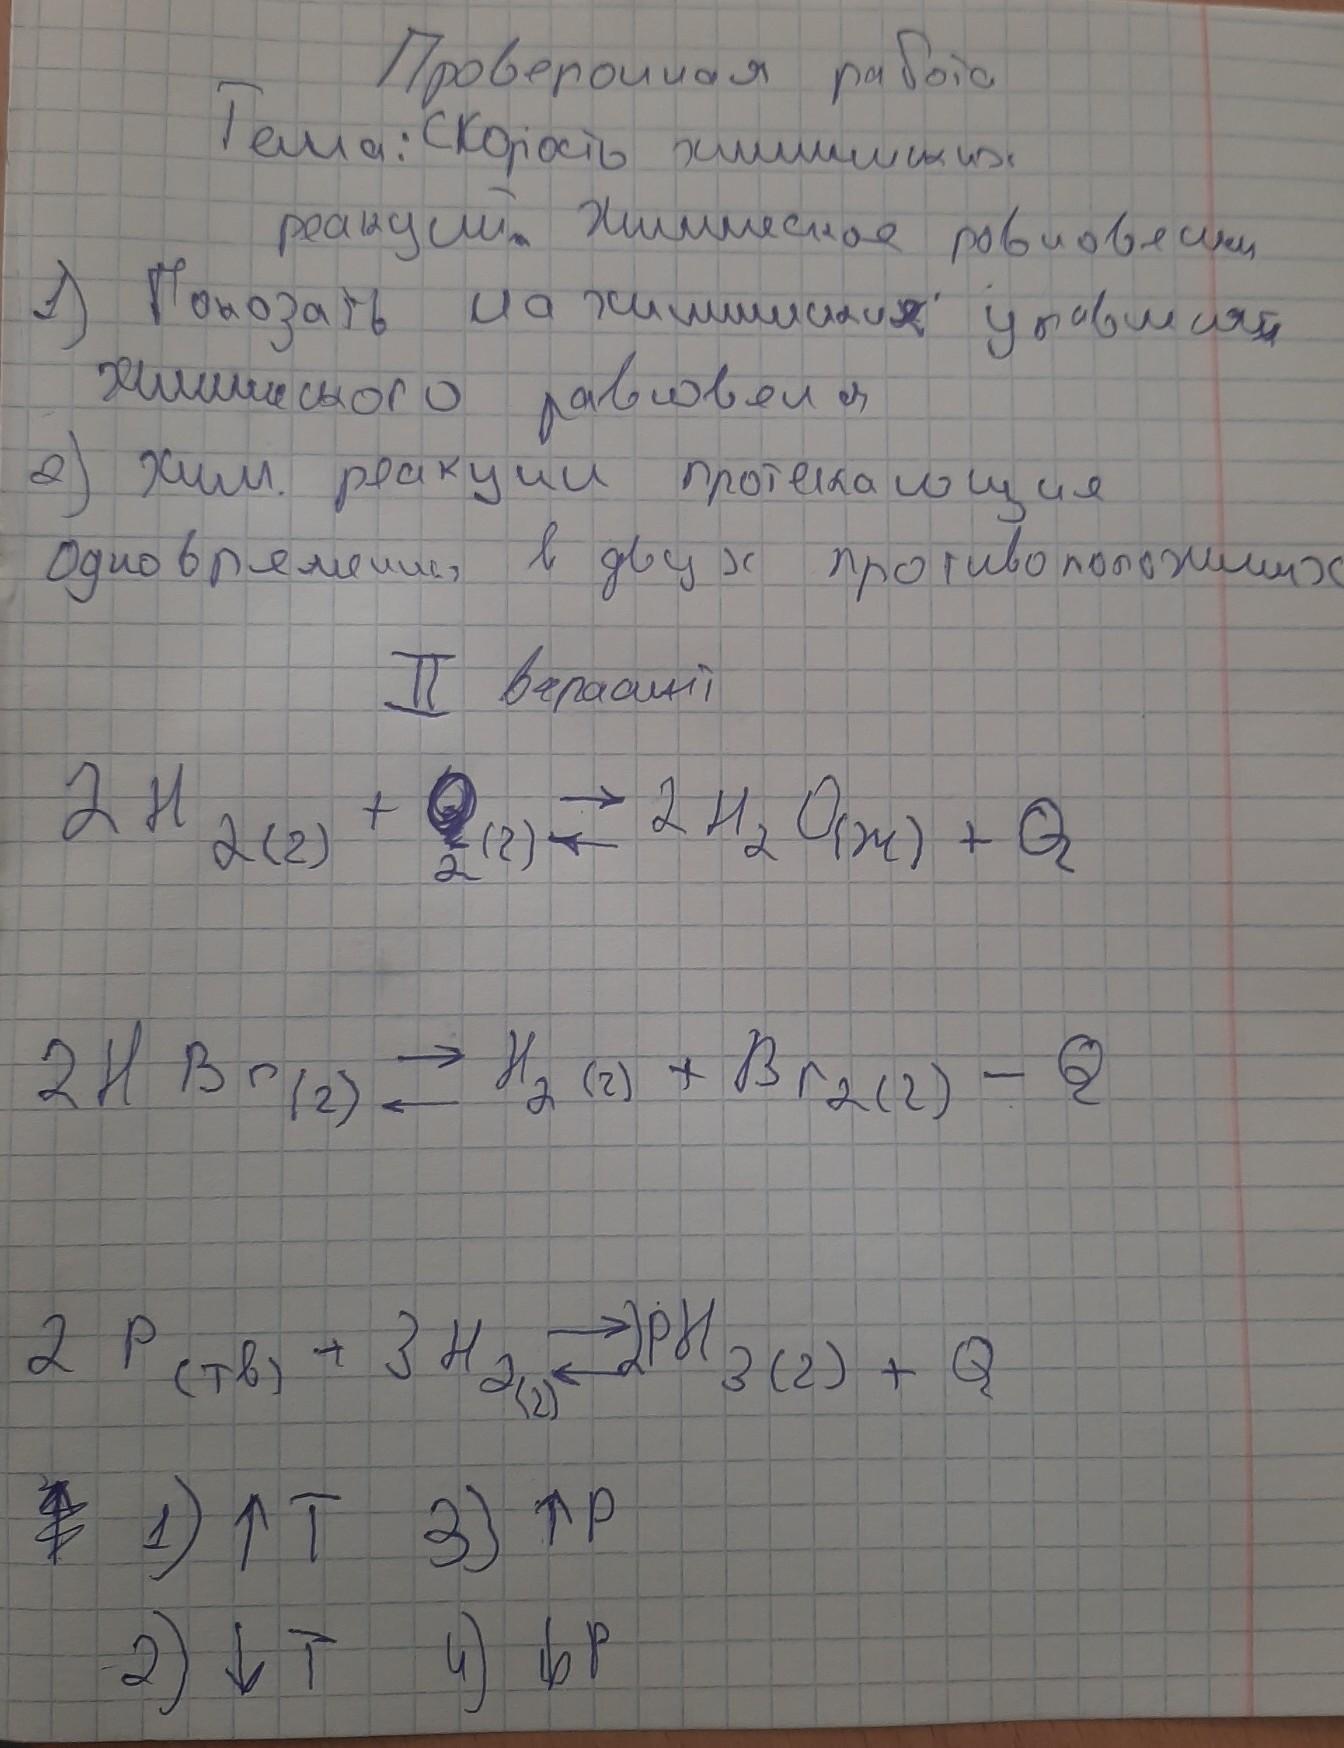 Проверочная работа
Тема: Скорость химических
реакций. Химическое равновесия
1) Показать на химических уравнения
химического равновеся
2) хим. реакции протекающия
одновременно в двух противоположных
II вариант
2H2(г) + O2(г) ⇄ 2H2O(ж) + Q
2HBr(г) ⇄ H2(г) + Br2(г) − Q
2P(тв) + 3H2(г) ⇄ 2PH3(г) + Q
1) ↑T 3) ↑P
2) ↓T 4) ↓P